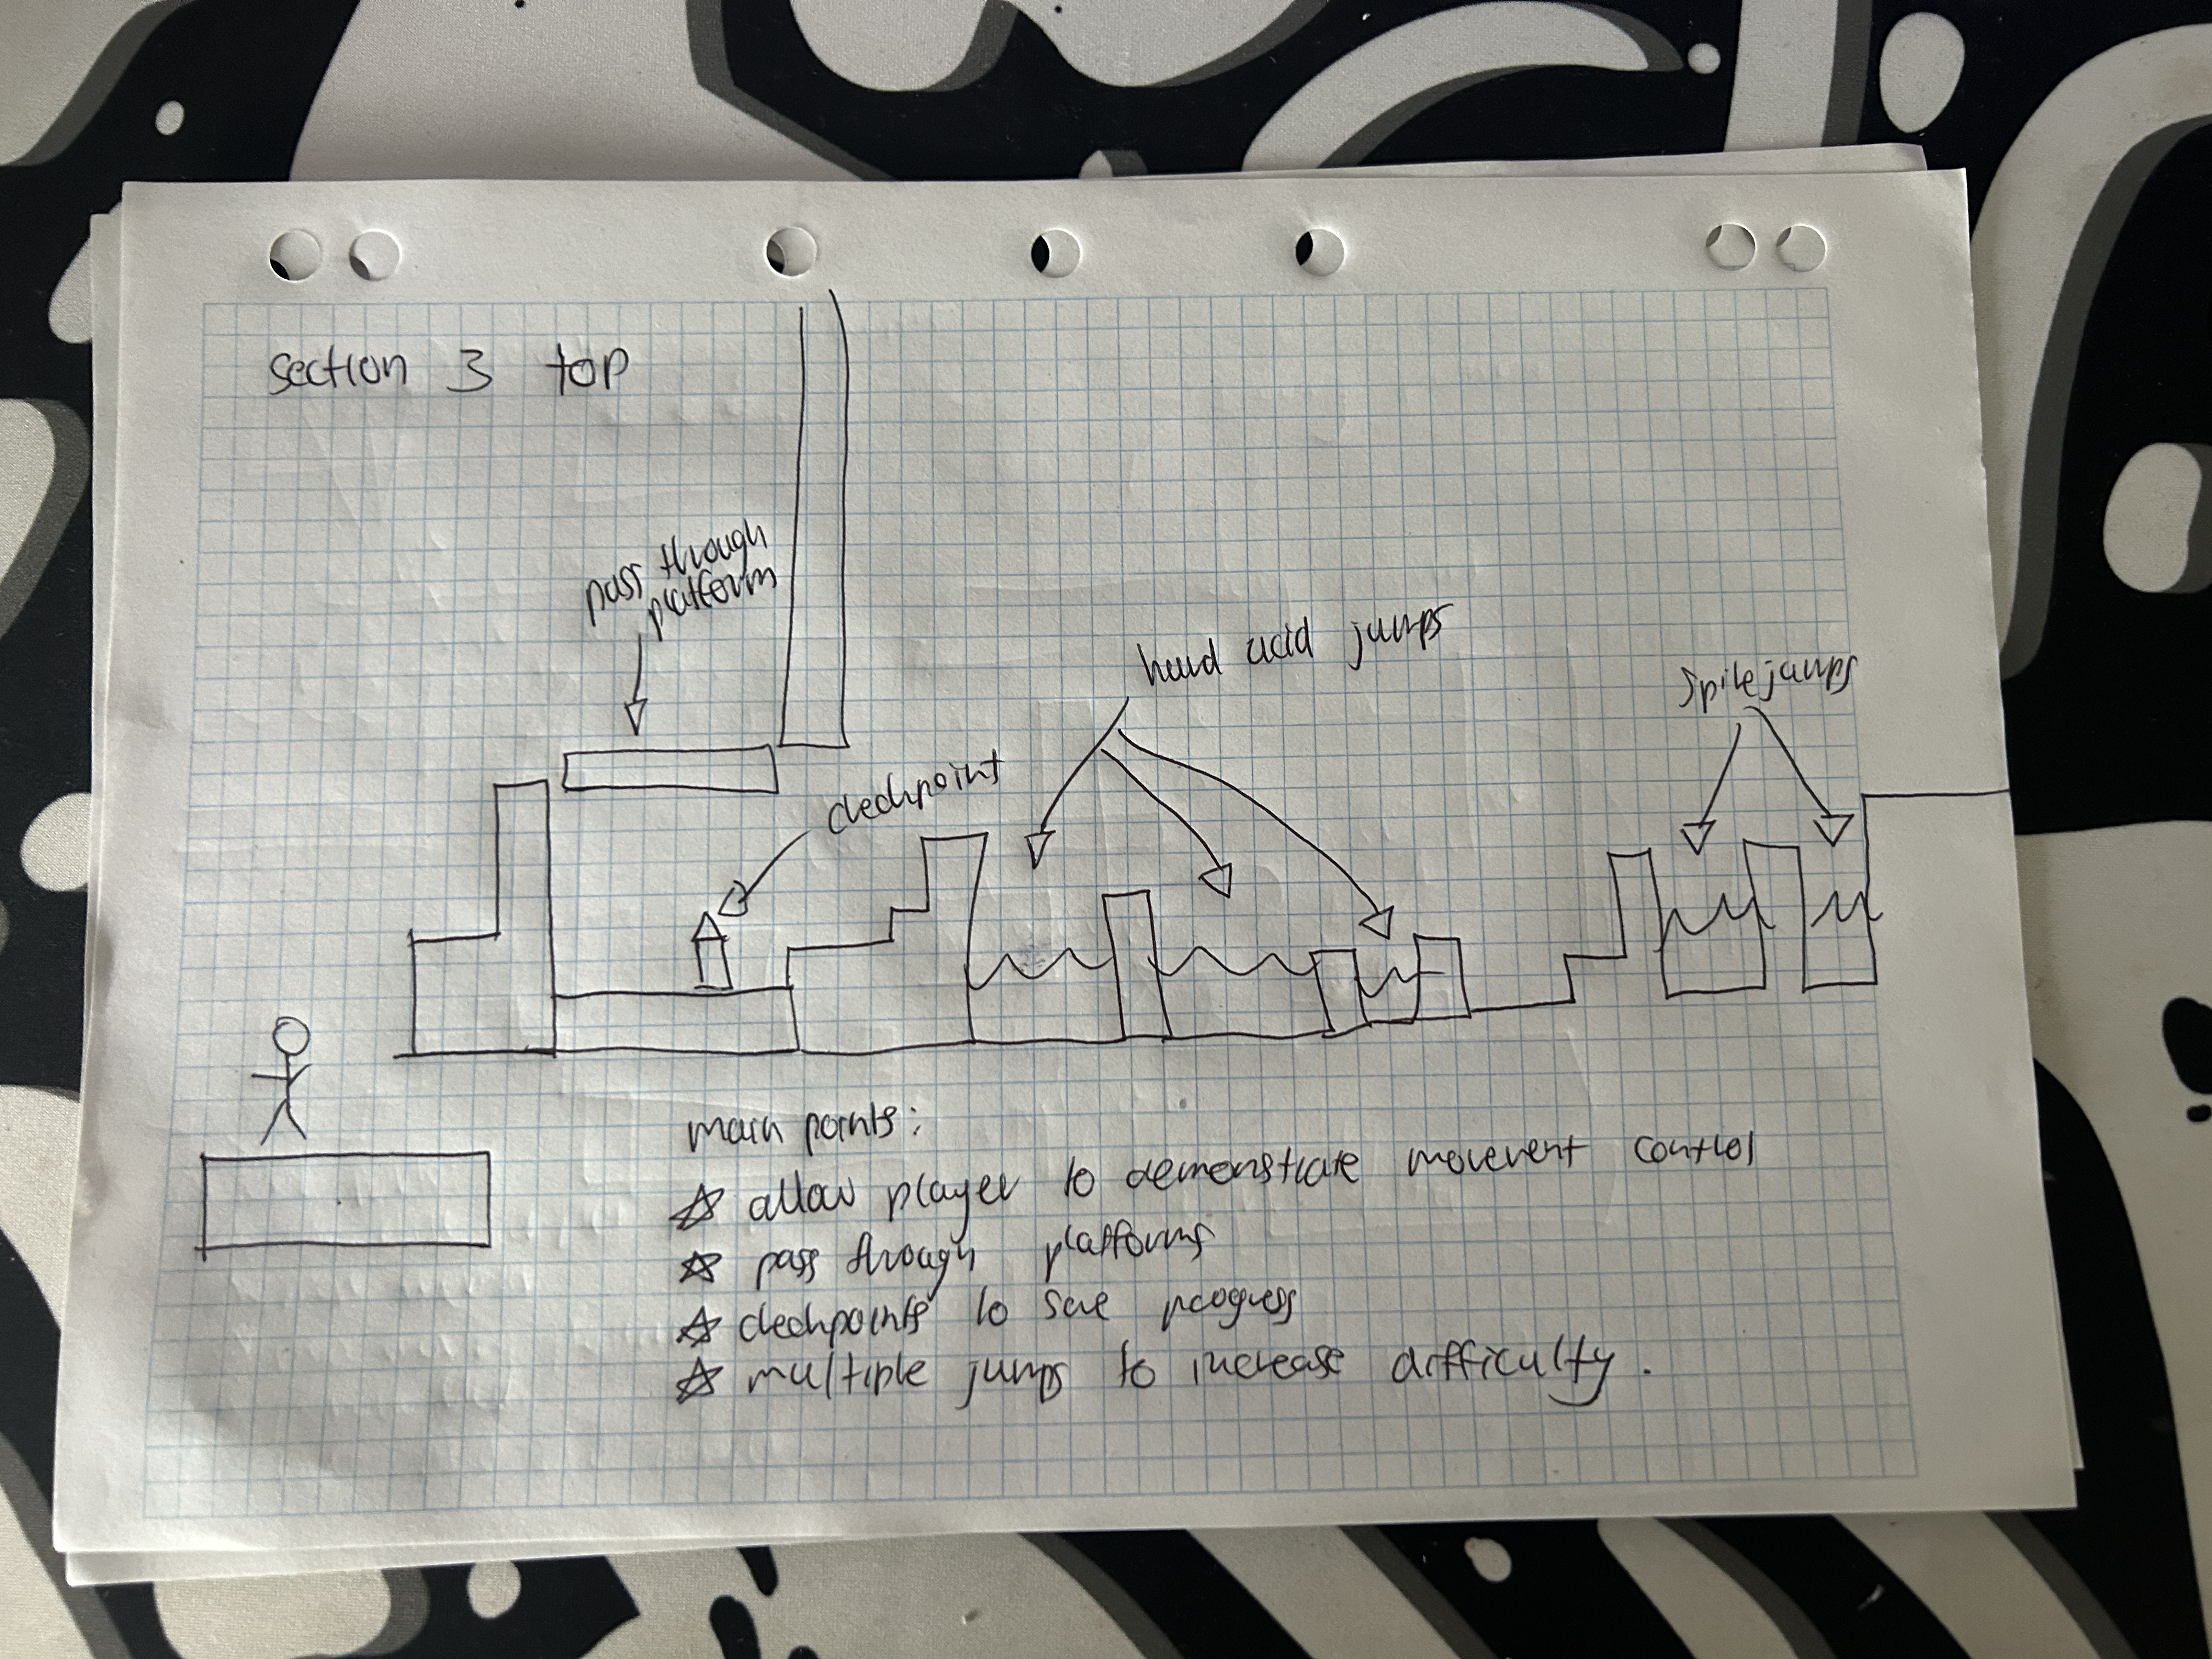 section 3 top
pass through
platform
checkpoint
hard acid jumps
spike jumps
main points:
☆ allow player to demonstrate movement control
☆ pass through platforms
☆ checkpoints to save progress
☆ multiple jumps to increase difficulty.